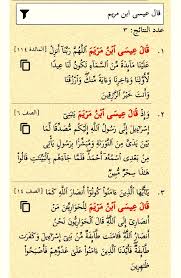 قال عيسى ابن مريم
عدد النتائج: ٣
١. قَالَ عِيسَى ٱبْنُ مَرْيَمَ ٱللَّهُمَّ رَبَّنَآ أَنزِلْ [المائدة ١١٤]
عَلَيْنَا مَآئِدَةً مِّنَ ٱلسَّمَآءِ تَكُونُ لَنَا عِيدًا
لِّأَوَّلِنَا وَءَاخِرِنَا وَءَايَةً مِّنكَ ۖ وَٱرْزُقْنَا
وَأَنتَ خَيْرُ ٱلرَّٰزِقِينَ
٢. وَإِذْ قَالَ عِيسَى ٱبْنُ مَرْيَمَ يَٰبَنِىٓ [الصف ٦]
إِسْرَٰٓءِيلَ إِنِّى رَسُولُ ٱللَّهِ إِلَيْكُم مُّصَدِّقًا لِّمَا
بَيْنَ يَدَىَّ مِنَ ٱلتَّوْرَىٰةِ وَمُبَشِّرًۢا بِرَسُولٍ يَأْتِى
مِنۢ بَعْدِى ٱسْمُهُۥٓ أَحْمَدُ ۖ فَلَمَّا جَآءَهُم بِٱلْبَيِّنَٰتِ قَالُوا۟
هَٰذَا سِحْرٌ مُّبِينٌ
٣. يَٰٓأَيُّهَا ٱلَّذِينَ ءَامَنُوا۟ كُونُوٓا۟ أَنصَارَ ٱللَّهِ كَمَا [الصف ١٤]
قَالَ عِيسَى ٱبْنُ مَرْيَمَ لِلْحَوَارِيِّۦنَ مَنْ
أَنصَارِىٓ إِلَى ٱللَّهِ ۖ قَالَ ٱلْحَوَارِيُّونَ نَحْنُ
أَنصَارُ ٱللَّهِ ۖ فَـَٔامَنَت طَّآئِفَةٌ مِّنۢ بَنِىٓ إِسْرَٰٓءِيلَ وَكَفَرَت
طَّآئِفَةٌ ۖ فَأَيَّدْنَا ٱلَّذِينَ ءَامَنُوا۟ عَلَىٰ عَدُوِّهِمْ فَأَصْبَحُوا۟
ظَٰهِرِينَ